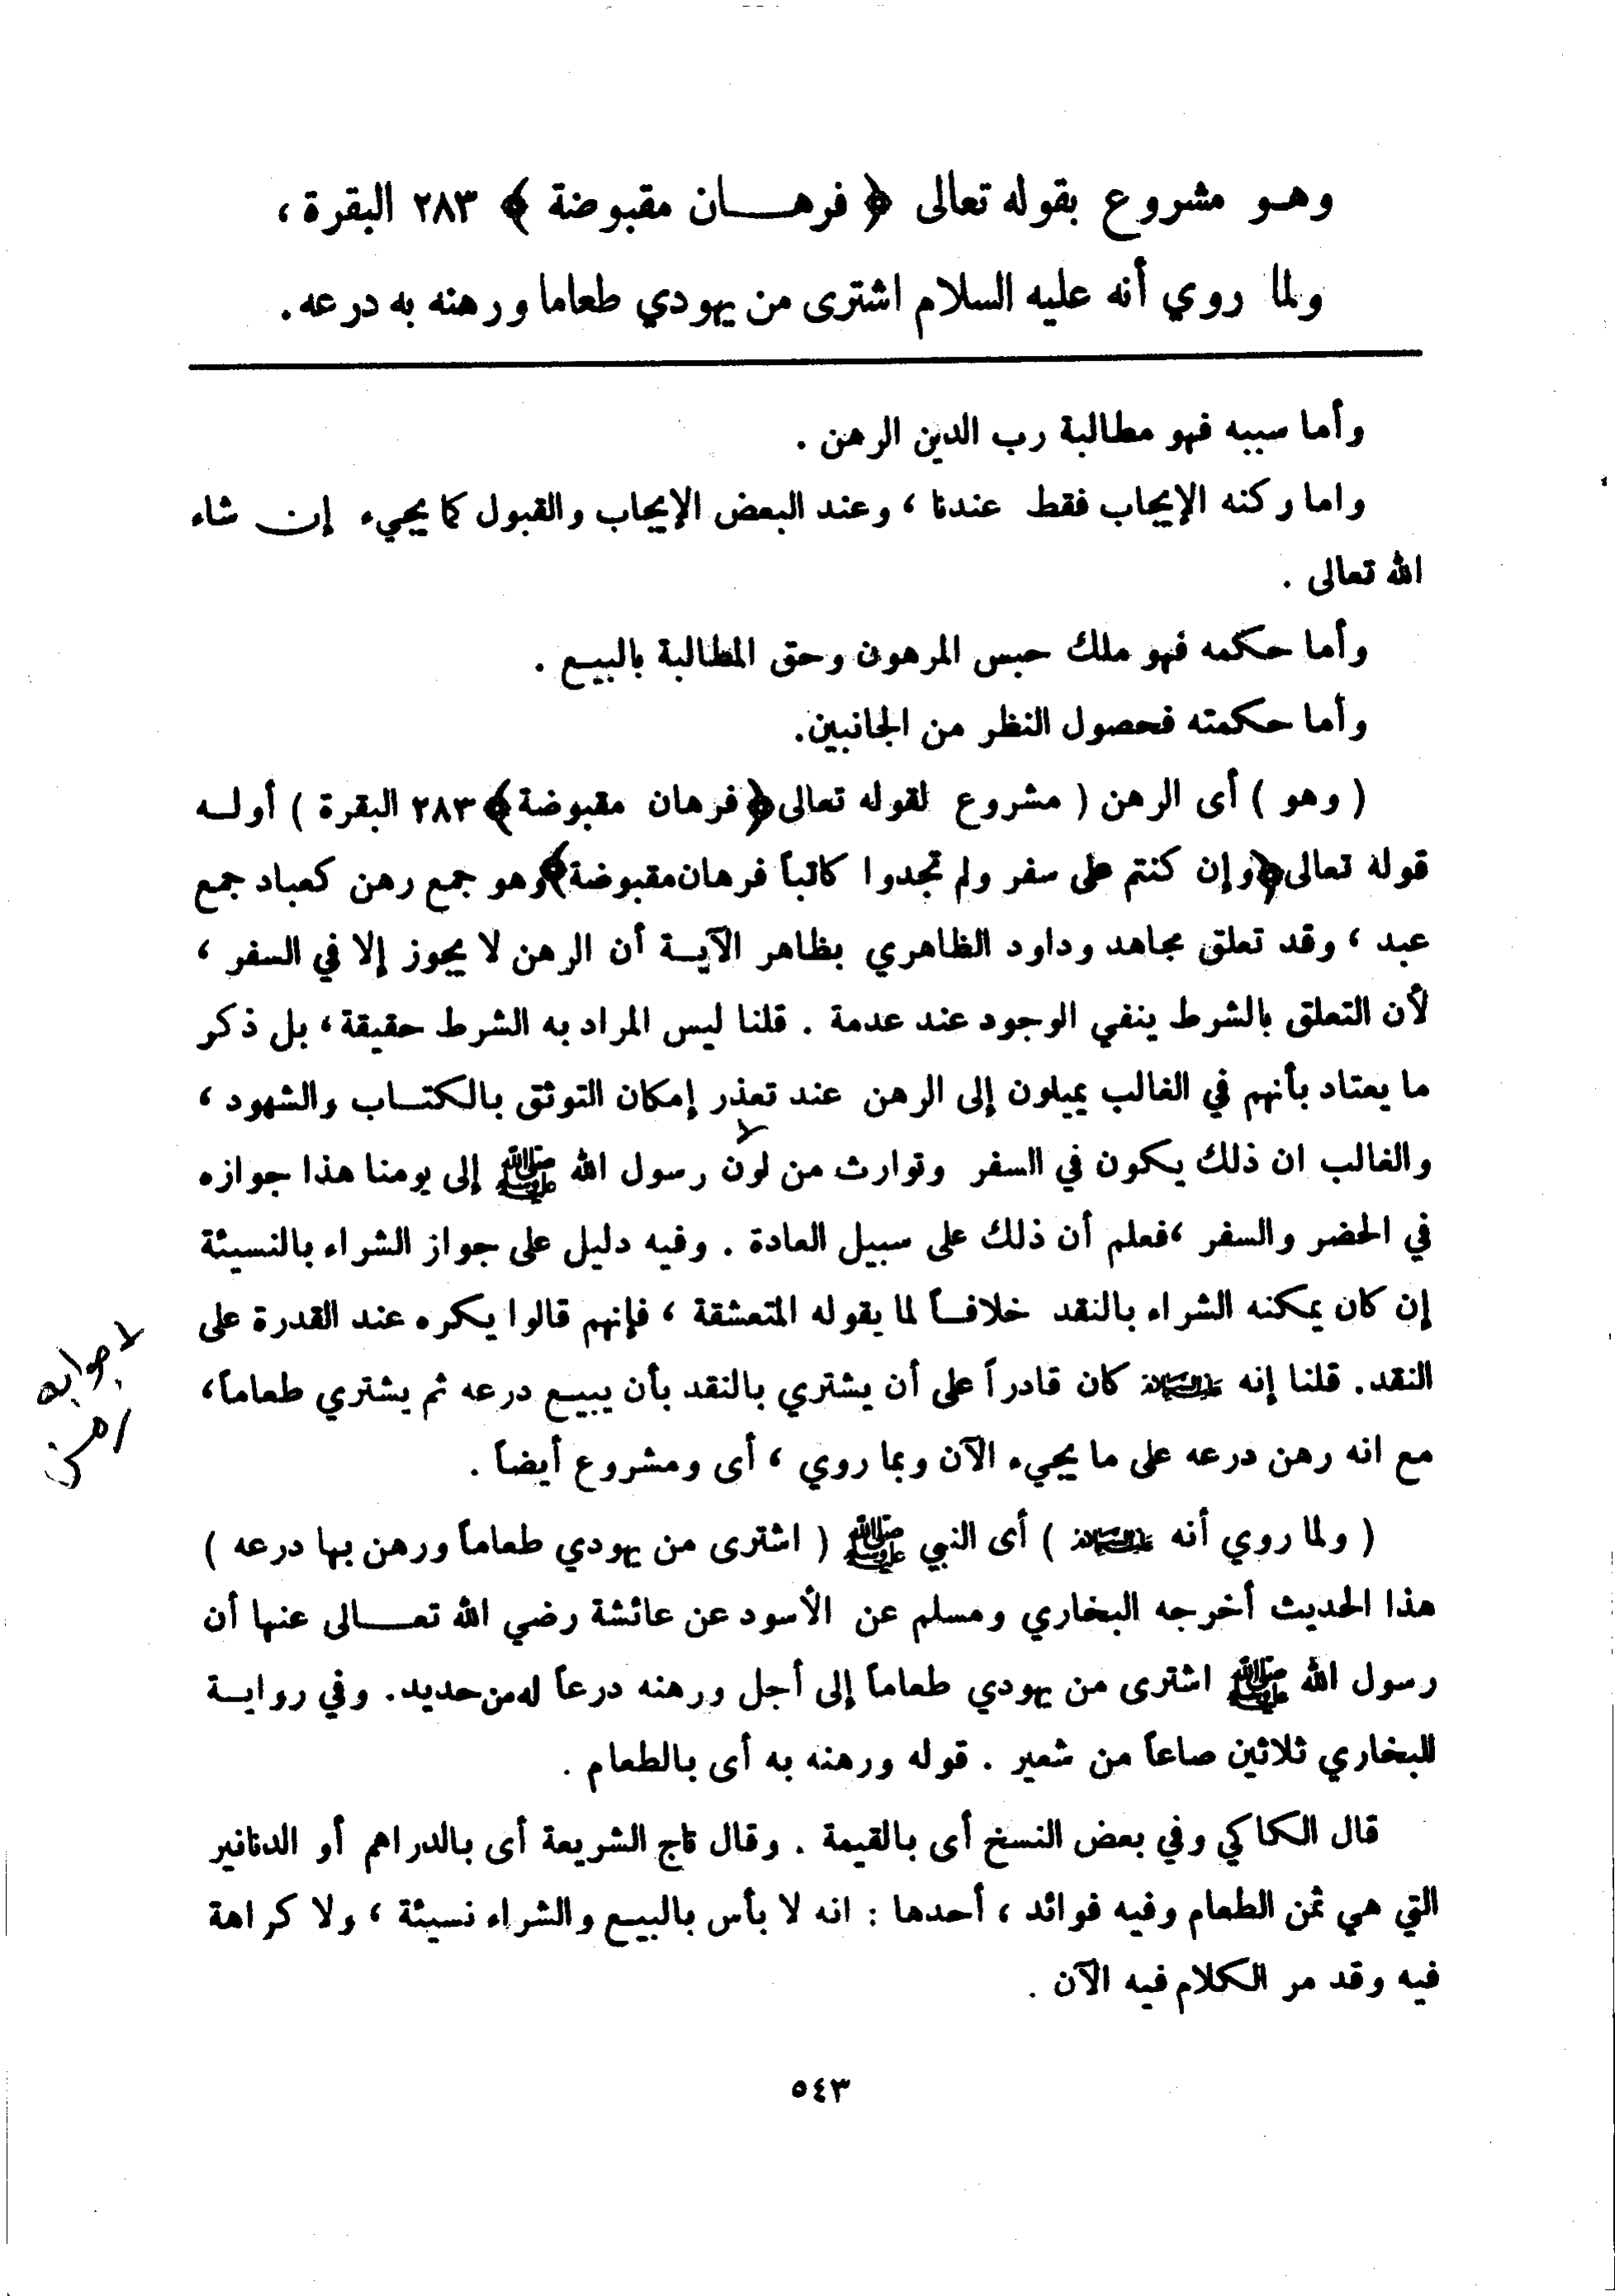 وهـو مشروع بقوله تعالى ﴿ فرهـــان مقبوضة ﴾ ٢٨٣ البقرة ،
ولما روي أنه عليه السلام اشترى من يهودي طعاما ورهنه به درعه .
وأما سببه فهو مطالبة رب الدين الرهن .
واما ركنه الإيجاب فقط عندنا ، وعند البعض الإيجاب والقبول كما يجيء إن شاء
الله تعالى .
وأما حكمه فهو ملك حبس المرهون وحق المطالبة بالبيع .
وأما حكمته فحصول النظر من الجانبين .
( وهو ) أى الرهن ( مشروع لقوله تعالى ﴿ فرهان مقبوضة ﴾ ٢٨٣ البقرة ) أولـه
قوله تعالى ﴿ وإن كنتم على سفر ولم تجدوا كاتباً فرهان مقبوضة ﴾ وهو جمع رهن كعباد جمع
عبد ، وقد تعلق مجاهد وداود الظاهري بظاهر الآيـة أن الرهن لا يجوز إلا في السفر ،
لأن التعلق بالشرط ينفي الوجود عند عدمة . قلنا ليس المراد به الشرط حقيقة ، بل ذكر
ما يعتاد بأنهم في الغالب يميلون إلى الرهن عند تعذر إمكان التوثق بالكتـاب والشهود ،
والغالب ان ذلك يكون في السفر وتوارث من لون رسول الله ﷺ إلى يومنا هذا جوازه
في الحضر والسفر ، فعلم أن ذلك على سبيل العادة . وفيه دليل على جواز الشراء بالنسيئة
إن كان يمكنه الشراء بالنقد خلافـاً لما يقوله المتعشقة ، فإنهم قالوا يكره عند القدرة على
النقد . قلنا إنه عليه السلام كان قادراً على أن يشتري بالنقد بأن يبيع درعه ثم يشتري طعاماً ،
مع انه رهن درعه على ما يجيء الآن وبما روي ، أى ومشروع أيضاً .
( ولما روي أنه عليه السلام ) أى النبي ﷺ ( اشترى من يهودي طعاماً ورهن بها درعه )
هذا الحديث أخرجه البخاري ومسلم عن الأسود عن عائشة رضي الله تعـــالى عنها أن
رسول الله ﷺ اشترى من يهودي طعاماً إلى أجل ورهنه درعاً له من حديد . وفي روايـة
للبخاري ثلاثين صاعاً من شعير . قوله ورهنه به أى بالطعام .
قال الكاكي وفي بعض النسخ أى بالقيمة . وقال تاج الشريعة أى بالدراهم أو الدنانير
التي هي ثمن الطعام وفيه فوائد ، أحدها : انه لا بأس بالبيع والشراء نسيئة ، ولا كراهة
فيه وقد مر الكلام فيه الآن .
٥٤٣